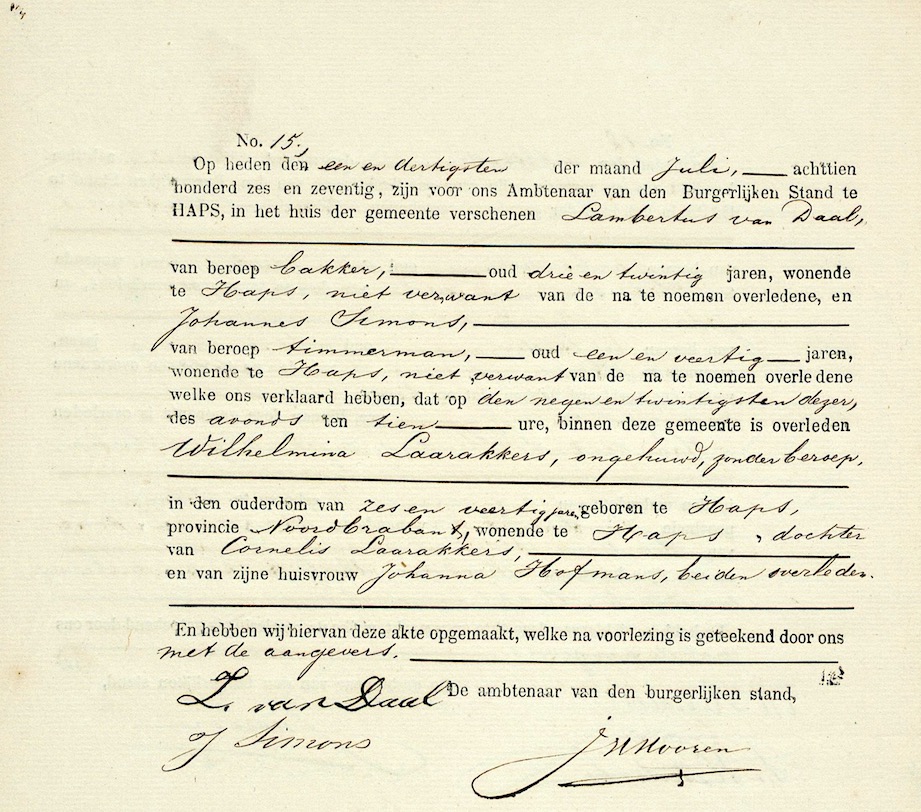 No. 15.,
Op heden den een en dertigsten der maand Juli, achttien
honderd zes en zeventig, zijn voor ons Ambtenaar van den Burgerlijken Stand te
HAPS, in het huis der gemeente verschenen Lambertus van Daal,
van beroep bakker, oud drie en twintig jaren, wonende
te Haps, niet verwant van de na te noemen overledene, en
Johannes Simons,
van beroep timmerman, oud een en veertig jaren,
wonende te Haps, niet verwant van de na te noemen overledene
welke ons verklaard hebben, dat op den negen en twintigsten dezer,
des avonds ten tien ure, binnen deze gemeente is overleden
Wilhelmina Laarakkers, ongehuwd, zonder beroep,
in den ouderdom van zes en veertig jaren, geboren te Haps,
provincie Noordbrabant, wonende te Haps, dochter
van Cornelis Laarakkers,
en van zijne huisvrouw Johanna Hofmans, beiden overleden.
En hebben wij hiervan deze akte opgemaakt, welke na voorlezing is geteekend door ons
met de aangevers.
De ambtenaar van den burgerlijken stand,
L. van Daal
J Simons